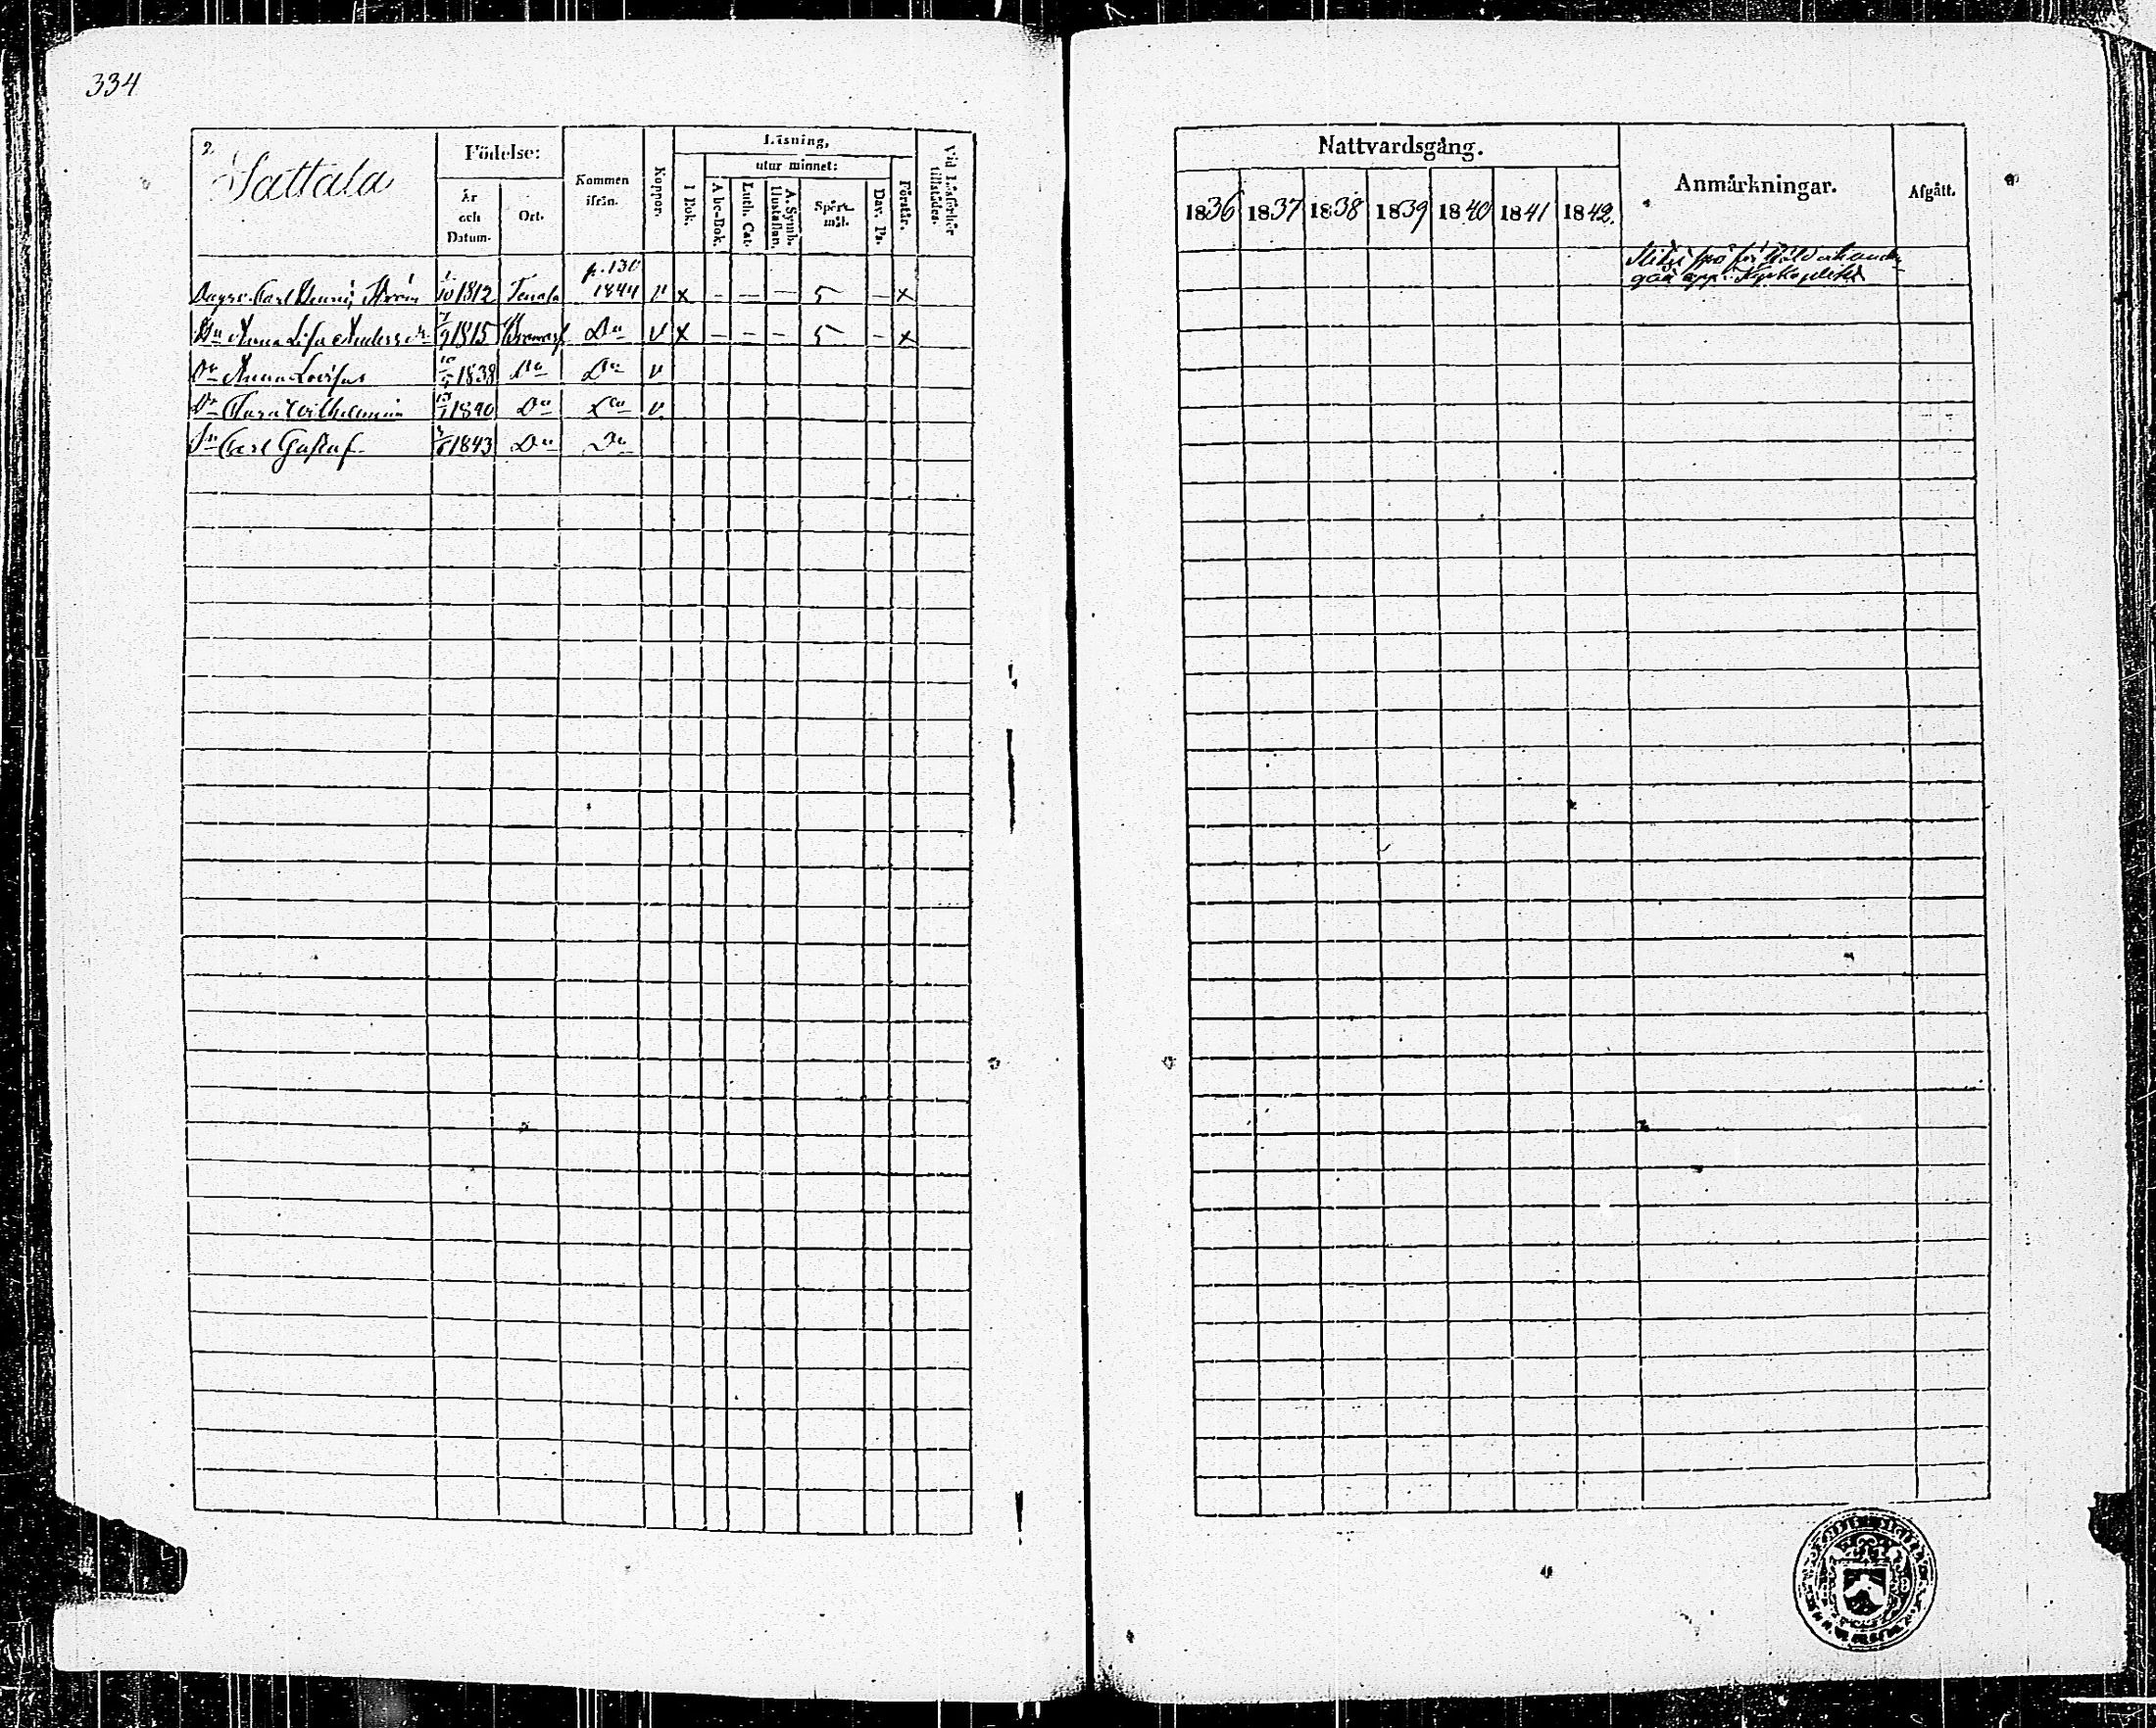 334
2.
Sattala
Födelse:
År och Datum.
Ort.
Kommen ifrån.
Koppor.
Läsning,
I Bok.
utur minnet:
A bc-Bok.
Luth. Cat.
A. Symb. Hustaflan.
Spörs-mål.
Dav. Ps.
Förstår.
Vid Läsförhör tillstädes.
p. 130
Carl 1/10 1812 Tenala 1844 v x – – – 5 – x
Anna Lisa Anders 7/9 1815 Do v x – – – 5 – x
Dr Anna Lovisa 1838 Do Do v
Dr Clara Wilhelmina 1840 Do Do v
Sn Carl Gustaf 1843 Do Do
Nattvardsgång.
1836 1837 1838 1839 1840 1841 1842.
Anmärkningar.
Afgått.